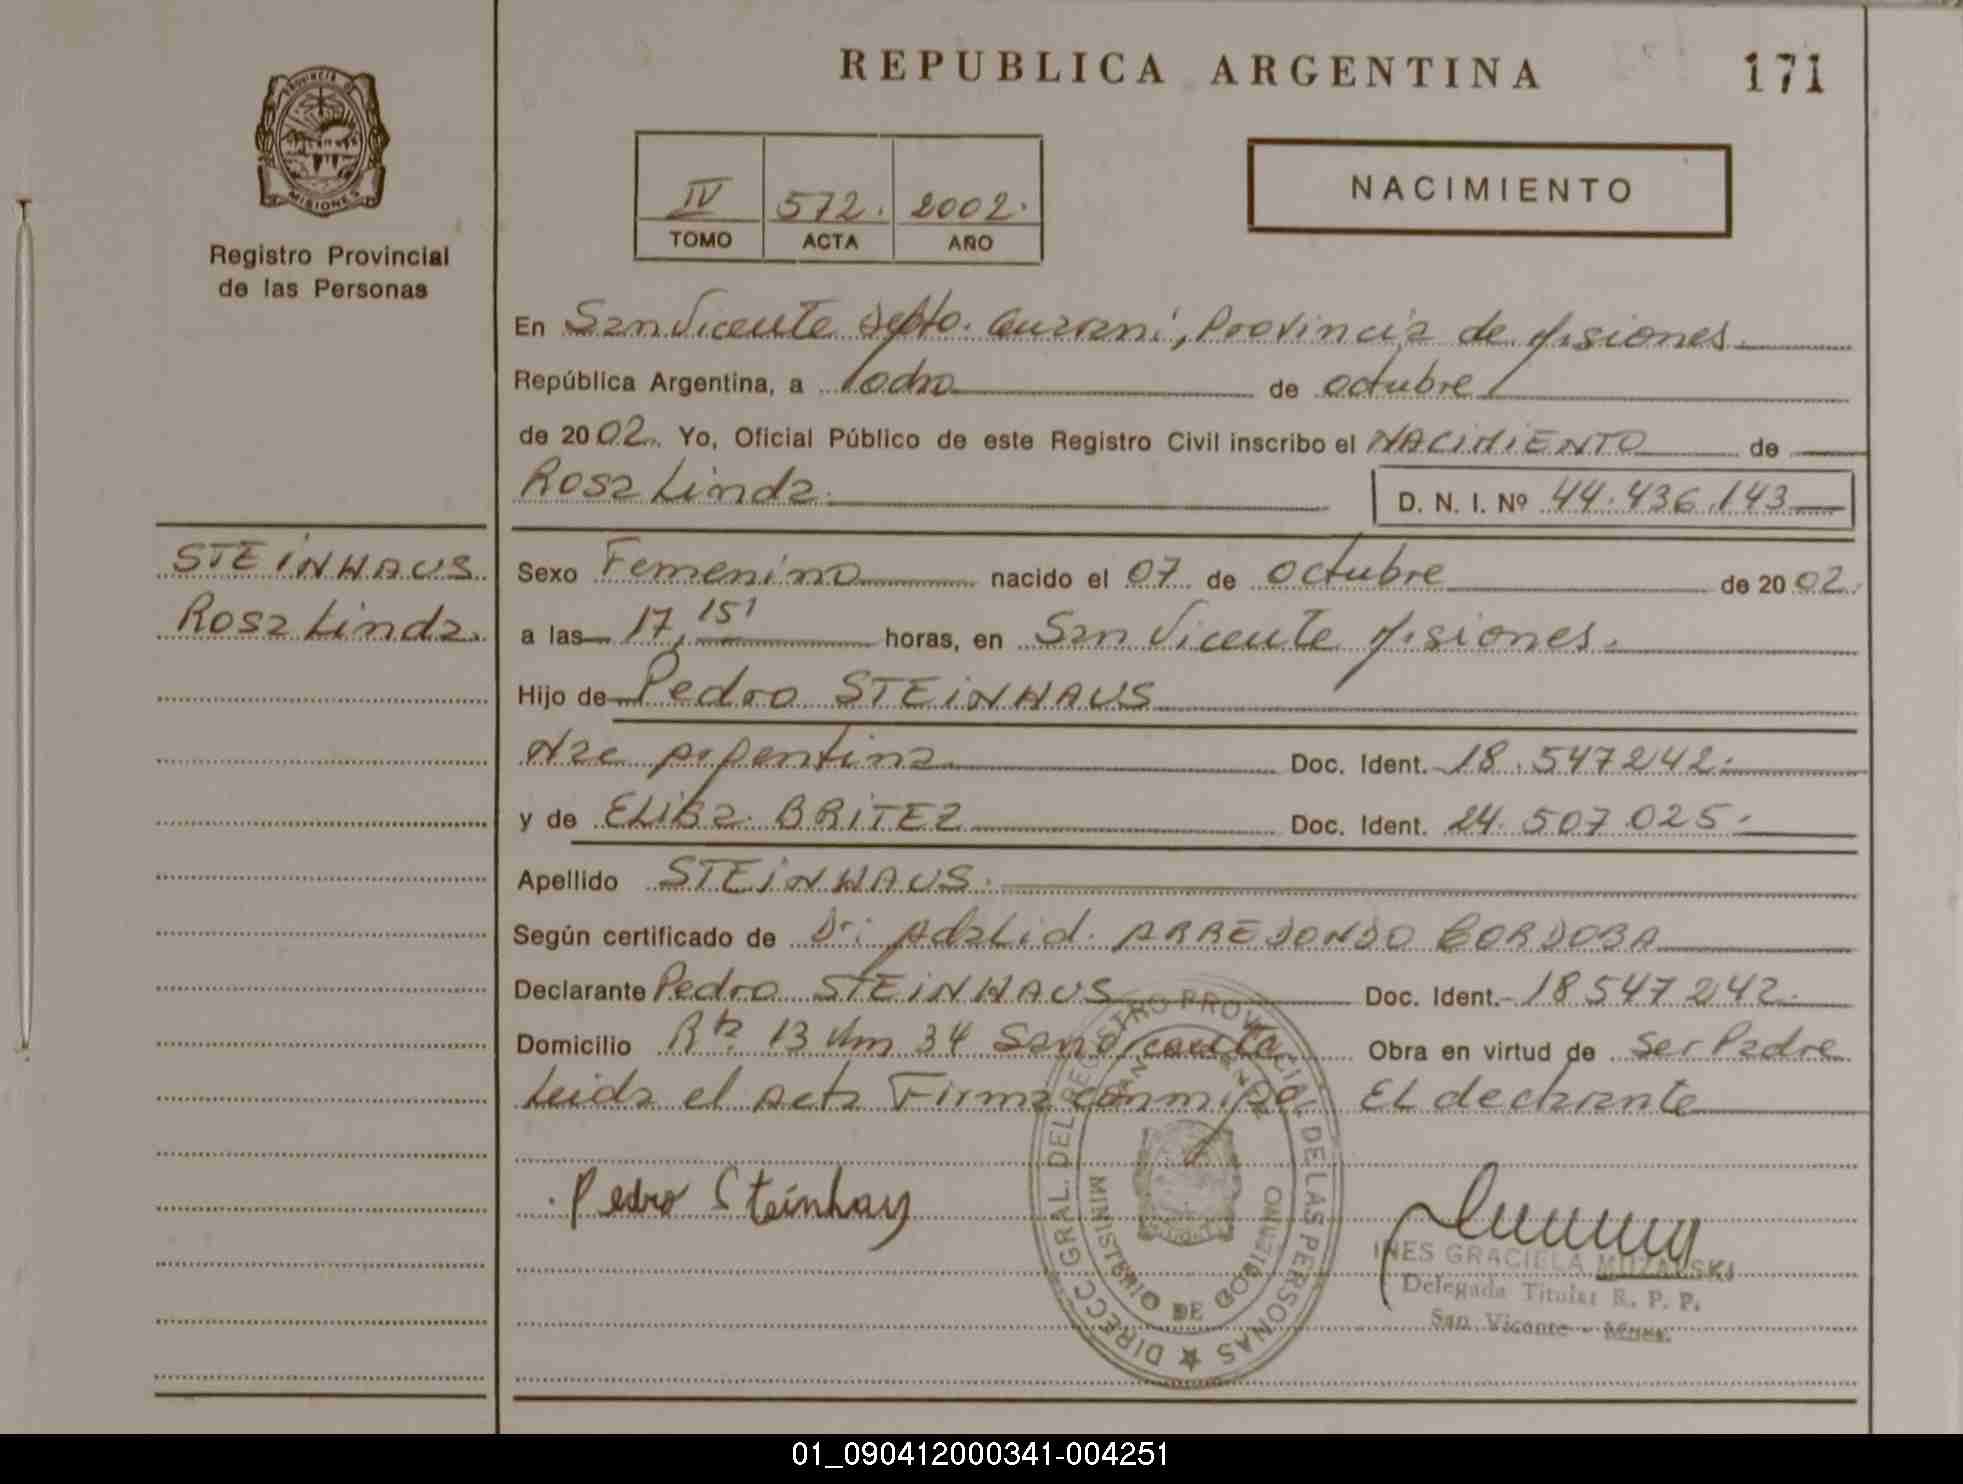 REPUBLICA ARGENTINA
171
PROVINCIA DE MISIONES
Registro Provincial
de las Personas
IV 572. 2002.
TOMO ACTA AÑO
NACIMIENTO
En San Vicente Dpto. Guaraní, Provincia de Misiones.
República Argentina, a ocho de octubre
de 2002. Yo, Oficial Público de este Registro Civil inscribo el NACIMIENTO de
Rosa Linda.
D. N. I. Nº 44.436.143
STEiNHAUS
Rosa Linda.
Sexo Femenino nacido el 07 de octubre de 2002.
a las 17,15' horas, en San Vicente Misiones.
Hijo de Pedro STEiNHAUS
Nac Argentina Doc. Ident. 18.547242.
y de ELiSa BRiTEZ Doc. Ident. 24.507.025.
Apellido STEiNHAUS.
Según certificado de Dr: Adalid. ARREDONDO CORDOBA
Declarante Pedro STEiNHAUS Doc. Ident. 18547242.
Domicilio Rta 13 Km 34 San Vicente Obra en virtud de Ser Padre
Leida el Acta Firma conmigo EL declarante
Pedro Steinhaus
DIRECC. GRAL. DEL REGISTRO PROVINCIAL DE LAS PERSONAS
MINISTERIO DE GOBIERNO
SAN VICENTE
INES GRACIELA MUZALSKI
Delegada Titular R. P. P.
San Vicente - Mnes.
01_090412000341-004251